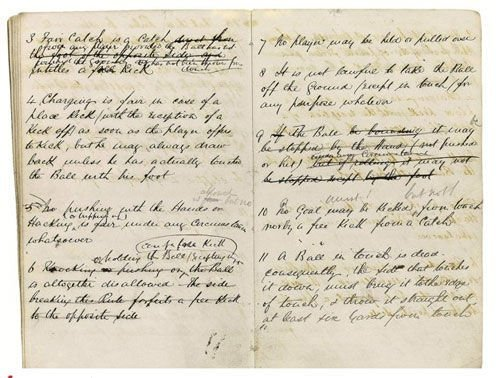 3 Fair Catch is a Catch direct from
from any player provided the Ball has not
touched the ground
entitles a free kick
4 Charging is fair in case of a
place kick (with the exception of a
kick off) as soon as the player offers
to kick, but he may always draw
back unless he has actually touched
the Ball with his foot.
5 No pushing with the Hands or
Hacking is fair under any Circumstances
or tripping up
whatsoever
6 Knocking or pushing on the Ball
holding the Ball excepting in
case of free kick
is altogether disallowed. The side
breaking this Rule forfeits a free Kick
to the opposite side
7 No player may be held or pulled over
8 It is not lawful to take the Ball
off the Ground (except in touch) for
any purpose whatever
9 If the Ball be bounding it may be
be stopped by the Hand (not pushed
or hit)
but if rolling it may not
be stopped except by the foot
10 No Goal may be kicked from touch
nor by a free kick from a Catch
11 A Ball in touch is dead
consequently the side that touches
it down, must bring it to the edge
of touch, & throw it straight out
at least six yards from touch